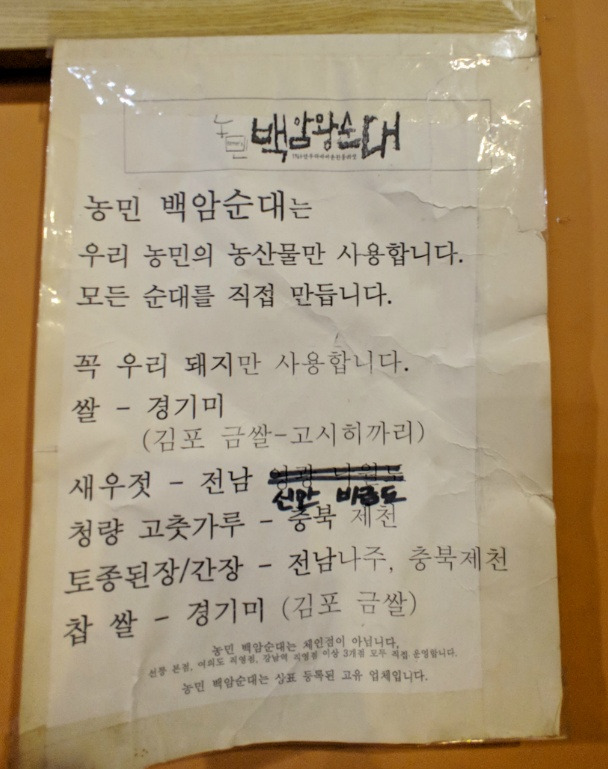 농민 백암왕순대
농민 백암순대는
우리 농민의 농산물만 사용합니다.
모든 순대를 직접 만듭니다.
꼭 우리 돼지만 사용합니다.
쌀 - 경기미
(김포 금쌀-고시히까리)
새우젓 - 전남
신안 비금도
청량 고춧가루 - 충북 제천
토종된장/간장 - 전남나주, 충북제천
찹 쌀 - 경기미 (김포 금쌀)
농민 백암순대는 체인점이 아닙니다.
선릉 본점, 여의도 직영점, 강남역 직영점 이상 3개점 모두 직접 운영합니다.
농민 백암순대는 상표 등록된 고유 업체입니다.